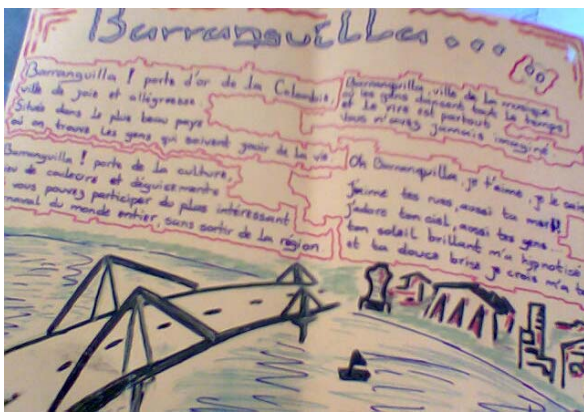 Barranquilla...
Barranquilla ! porte d'or de la Colombie,
ville de joie et allégresse.
Située dans le plus beau pays
où on trouve les gens qui savent jouir de la vie.
Barranquilla ! porte de la culture,
de couleurs et déguisements
vous pouvez participer du plus intéressant
du monde entier, sans sortir de la région
Barranquilla, ville de la musique
où les gens dansent tout le temps
et le rire est partout,
vous n'avez jamais imaginé.
Oh Barranquilla, je t'aime, je le sais
J'aime tes rues, aussi ta mer
j'adore ton ciel, aussi tes gens.
ton soleil brillant m'a hypnotisé
et ta douce brise je crois m'a